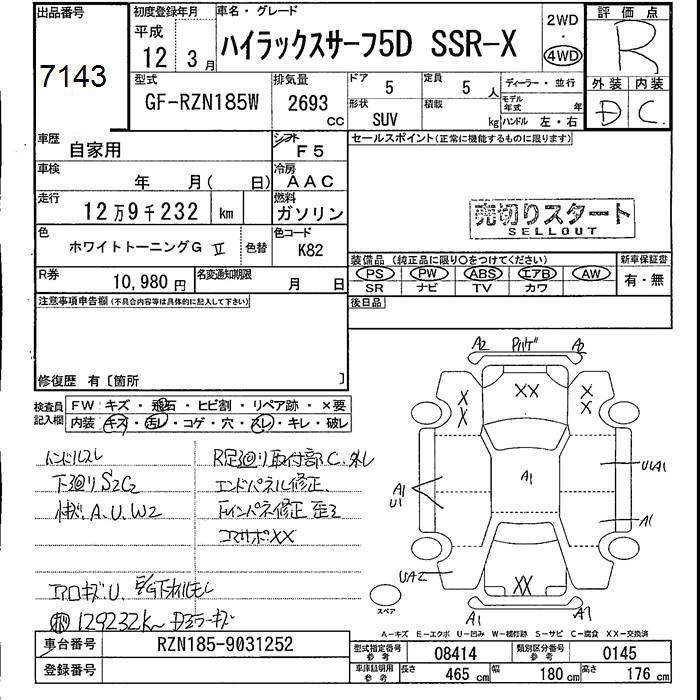 出品番号
7143
初度登録年月
平成
12 3月
車名・グレード
ハイラックスサーフ5D SSR-X
2WD
・
4WD
評価点
R
型式
GF-RZN185W
排気量
2693
CC
ドア
5
定員
5人
形状
SUV
積載
kg
ディーラー・並行
モデル年式
年
ハンドル 左・右
外装 内装
D C
車歴
自家用
シフト
F5
車検
年 月( 日)
冷房
AAC
走行
12万9千232 km
燃料
ガソリン
色
ホワイトトーニングG Ⅱ
色替
色コード
K82
R券
10,980円
名変通知期限
月 日
セールスポイント(正常に機能するものに限ります)
売切りスタート
SELLOUT
装備品 (純正品に限り○をつけてください)
PS PW ABS エアB AW
SR ナビ TV カワ
新車保証書
有・無
後日品
注意事項申告欄(不具合内容等は具体的に記入して下さい)
修復歴 有〔箇所 〕
検査員記入欄
FW キズ・飛石・ヒビ割・リペア跡・×要
内装 キズ・汚レ・コゲ・穴・スレ・キレ・破レ
ハンドルスレ
下廻りS2C2
A.U.W2
エアロキズU.
129232K~
R足廻り取付部C.
エンドパネル修正.
コアサポXX
A2 A2
XX
XX
XX
A1
U1
A1
U1A1
A1
UA2
XX
A1 A1
スペア
A-キズ E-エクボ U-凹み W-補修跡 S-サビ C-腐食 XX-交換済
車台番号
RZN185-9031252
登録番号
型式指定番号
参考
08414
類別区分番号
参考
0145
車庫証明用
参考
長さ
465 cm
幅
180 cm
高さ
176 cm